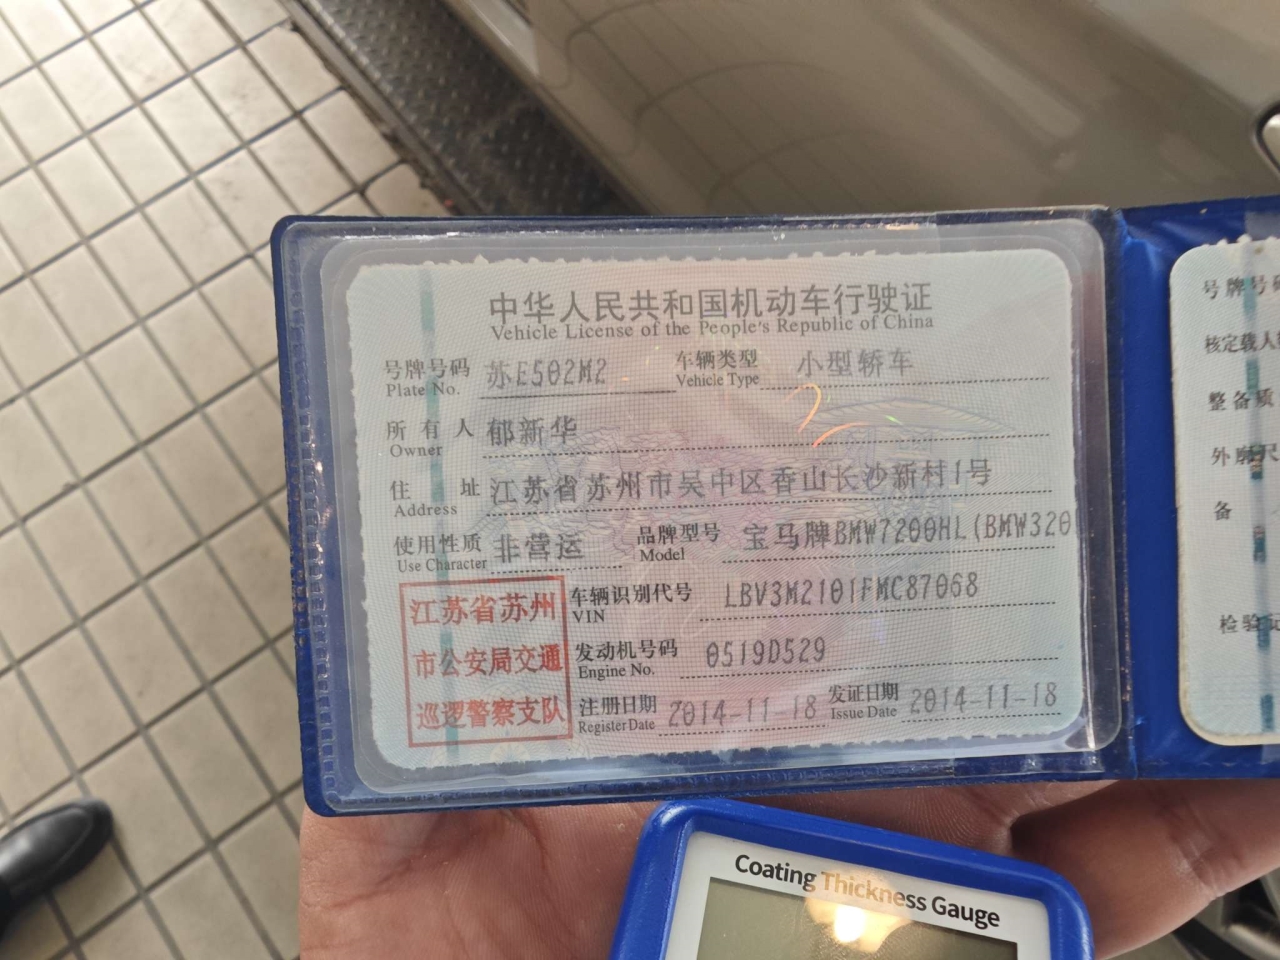 中华人民共和国机动车行驶证
Vehicle License of the People's Republic of China
号牌号码 苏E502M2 车辆类型 小型轿车
Plate No. Vehicle Type
所有人 郁新华
Owner
住址 江苏省苏州市吴中区香山长沙新村1号
Address
使用性质 非营运 品牌型号 宝马牌BMW7200HL(BMW320
Use Character Model
江苏省苏州
市公安局交通
巡逻警察支队
车辆识别代号 LBV3M2101FMC87068
VIN
发动机号码 0519D529
Engine No.
注册日期 2014-11-18 发证日期 2014-11-18
Register Date Issue Date
号牌号码
核定载人
整备质
外廓尺
备
检验记
Coating Thickness Gauge